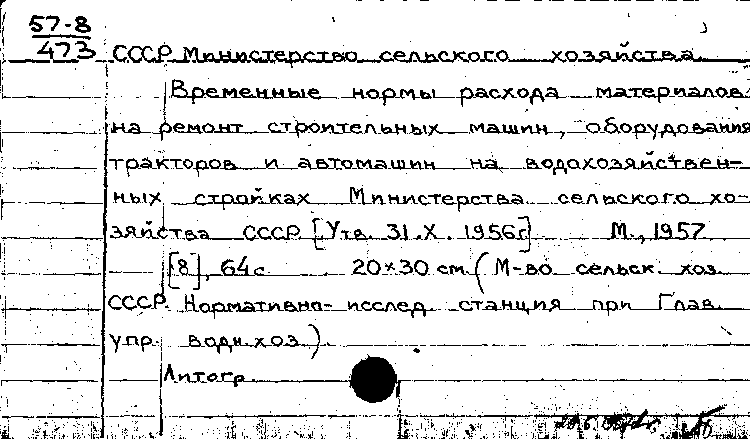 57-8
473
СССР. Министерство сельского хозяйства.
Временные нормы расхода материалов
на ремонт строительных машин, оборудования
тракторов и автомашин на водохозяйствен-
ных стройках Министерства сельского хо-
зяйства СССР. [Утв. 31.X.1956г.] М., 1957.
[8], 64с. 20×30 см. (М-во сельск. хоз.
СССР. Нормативно-исслед. станция при Глав.
упр. водн.хоз.).
Литогр.